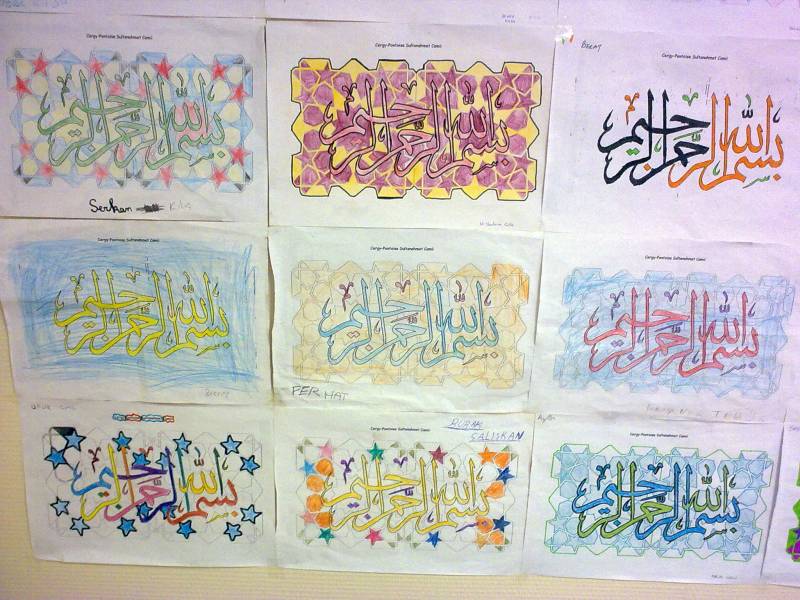 Cergy-Pontoise Sultanahmet Camii
بسم الله الرحمن الرحيم
Serkan
Cergy-Pontoise Sultanahmet Camii
بسم الله الرحمن الرحيم
Cergy-Pontoise Sultanahmet Camii
بسم الله الرحمن الرحيم
Cergy-Pontoise Sultanahmet Camii
بسم الله الرحمن الرحيم
Cergy-Pontoise Sultanahmet Camii
بسم الله الرحمن الرحيم
Cergy-Pontoise Sultanahmet Camii
بسم الله الرحمن الرحيم
بسم الله الرحمن الرحيم
BURAK
SALISKAN
Cergy-Pontoise Sultanahmet Camii
بسم الله الرحمن الرحيم
Cergy-Pontoise Sultanahmet Camii
بسم الله الرحمن الرحيم